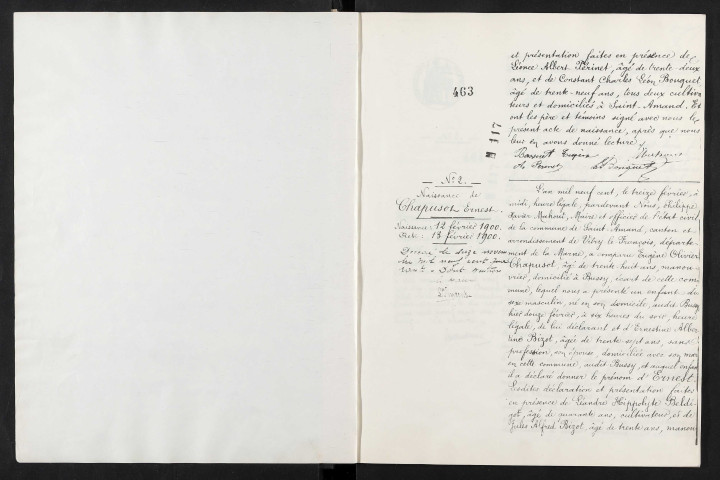 463
117
et présentation faites en présence de
Léonce Albert Périnet, âgé de trente deux
ans, et de Constant Charles Léon Bouquet
âgé de trente-neuf ans, tous deux cultiva
teurs et domiciliés à Saint-Amand. Et
ont les père et témoins signé avec nous le
présent acte de naissance, après que nous
leur en avons donné lecture.
Nº 2.
Naissance de
Chapusot Ernest
Naissance: 12 février 1900.
Acte: 13 février 1900.
L'an mil neuf cent, le treize février, à
midi, heure légale, pardevant Nous, Philippe
Xavier Mathieu, Maire et officier de l'état civil
de la commune de Saint-Amand, canton et
arrondissement de Vitry le François, départe-
ment de la Marne, a comparu Eugène Olivier
Chapusot, âgé de trente huit ans, manou
vrier, domicilié à Bussy, écart de cette com
mune, lequel nous a présenté un enfant du
sexe masculin, né en son domicile, audit Bussy
hier douze février, à six heures du soir, heure
légale, de lui déclarant et d'Ernestine Alber
tine Bizot, âgée de trente sept ans, sans
profession, son épouse, domiciliée avec son mari
en cette commune, audit Bussy, et auquel enfant
il a déclaré donner le prénom d'Ernest.
Lesdites déclaration et présentation faites
en présence de Léandre Hippolyte Beldi
got, âgé de quarante ans, cultivateur, et de
Jules Alfred Bizot, âgé de trente ans, manou